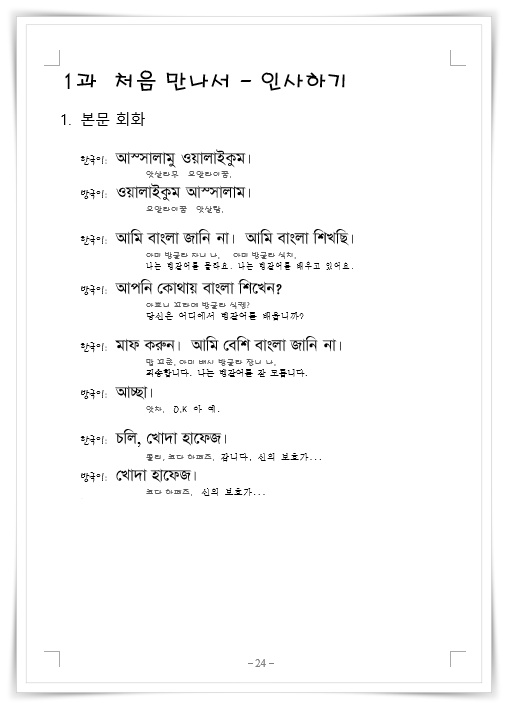 1과 처음 만나서 - 인사하기
1. 본문 회화
한국이: আস্সালামু ওয়ালাইকুম।
앗살라무 오알라이꿈,
방국이: ওয়ালাইকুম আস্সালাম।
오알라이꿈 앗살람,
한국이: আমি বাংলা জানি না। আমি বাংলা শিখছি।
아미 방글라 자니 나, 아미 방글라 식치,
나는 벵갈어를 몰라요. 나는 벵갈어를 배우고 있어요.
방국이: আপনি কোথায় বাংলা শিখেন?
아프니 꼬타에 방글라 식켄?
당신은 어디에서 벵갈어를 배웁니까?
한국이: মাফ করুন। আমি বেশি বাংলা জানি না।
맙 꼬룬, 아미 베시 방글라 자니 나,
죄송합니다. 나는 벵갈어를 잘 모릅니다.
방국이: আচ্ছা।
앗차, O.K 아 예.
한국이: চলি, খোদা হাফেজ।
쫄리, 코다 하페즈, 갑니다. 신의 보호가...
방국이: খোদা হাফেজ।
코다 하페즈, 신의 보호가...
- 24 -